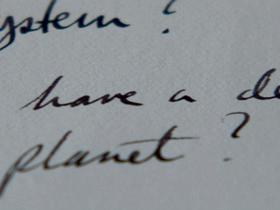 ystem ?
have a de
planet ?